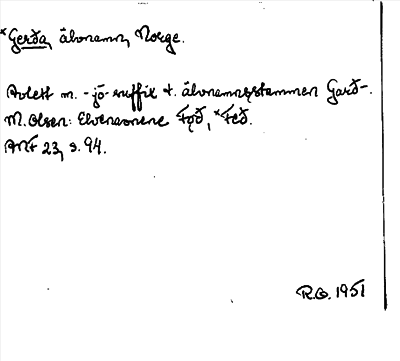 *Gerða, älvnamn, Norge.
Avlett m. -jō-suffix t. älvnamnsstammen Garð-.
M. Olsen: Elvenavnene Fǫð, *Feð.
ANF 23, s. 94.
R.O. 1951